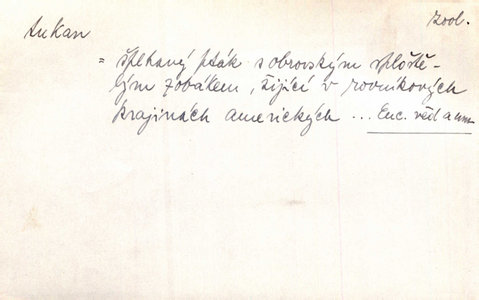 tukan
zool.
= šplhavý pták s obrovským sploště-
lým zobákem, žijící v rovníkových
krajinách amerických ... Enc. věd a um.